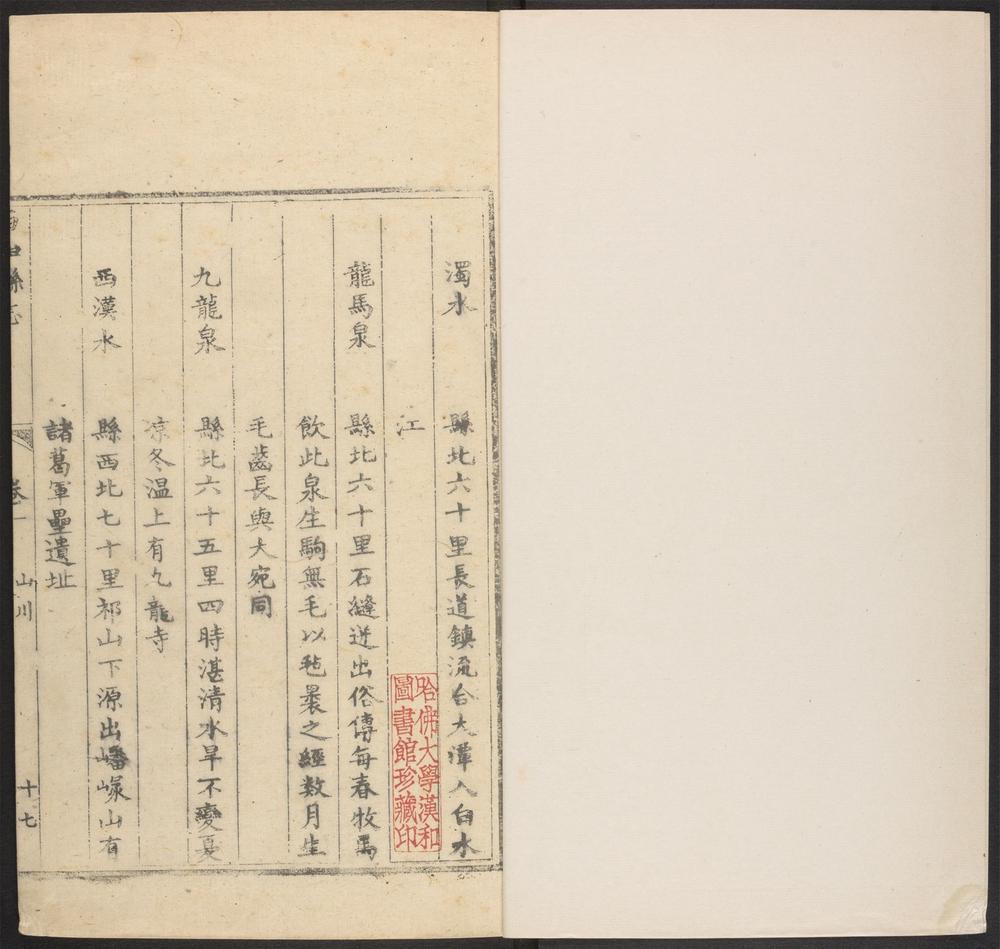 濁水　縣北六十里長道鎮流合大潭入白水
江
龍馬泉　縣北六十里石縫迸出俗傳每春牧馬
飲此泉生駒無毛以毡裹之經数月生
毛齒長與大宛同
九龍泉　縣北六十五里四時湛清水旱不變夏
凉冬温上有九龍寺
西漢水　縣西北七十里祁山下源出嶓嶓山有
諸葛軍壘遺址
縣志　卷一　山川　十七
哈佛大學漢和
圖書館珍藏印